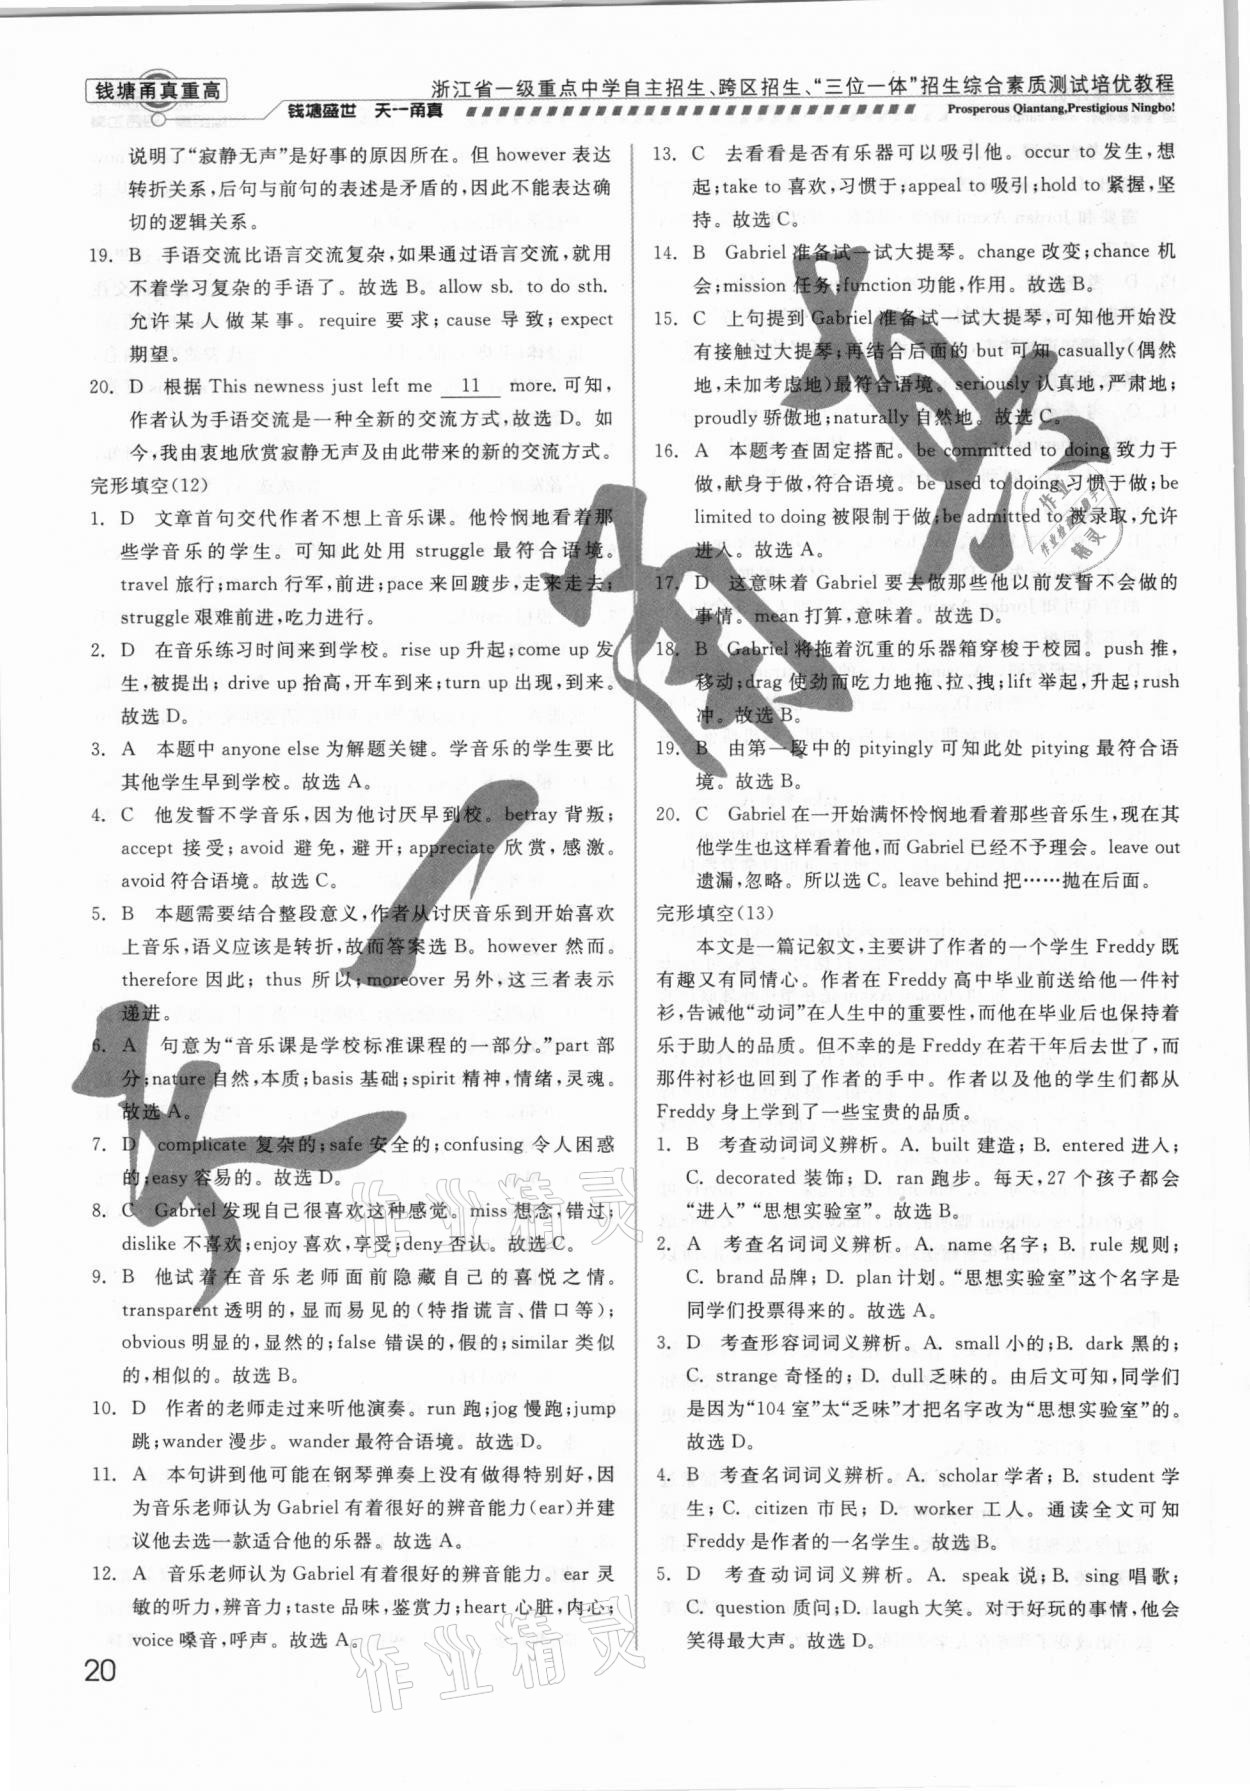 钱塘甬真重高
浙江省一级重点中学自主招生、跨区招生、“三位一体”招生综合素质测试培优教程
钱塘盛世 天一甬真
Prosperous Qiantang,Prestigious Ningbo!
说明了“寂静无声”是好事的原因所在。但 however 表达
转折关系,后句与前句的表述是矛盾的,因此不能表达确
切的逻辑关系。
19. B 手语交流比语言交流复杂,如果通过语言交流,就用
不着学习复杂的手语了。故选 B。allow sb. to do sth.
允许某人做某事。require 要求; cause 导致; expect
期望。
20. D 根据 This newness just left me 11 more. 可知,
作者认为手语交流是一种全新的交流方式,故选 D。如
今,我由衷地欣赏寂静无声及由此带来的新的交流方式。
完形填空(12)
1. D 文章首句交代作者不想上音乐课。他怜悯地看着那
些学音乐的学生。可知此处用 struggle 最符合语境。
travel 旅行;march 行军,前进;pace 来回踱步,走来走去;
struggle 艰难前进,吃力行进。
2. D 在音乐练习时间来到学校。rise up 升起;come up 发
生,被提出; drive up 抬高,开车到来; turn up 出现,到来。
故选 D。
3. A 本题中 anyone else 为解题关键。学音乐的学生要比
其他学生早到学校。故选 A。
4. C 他发誓不学音乐,因为他讨厌早到校。betray 背叛;
accept 接受; avoid 避免,避开; appreciate 欣赏,感激。
avoid 符合语境。故选 C。
5. B 本题需要结合整段意义,作者从讨厌音乐到开始喜欢
上音乐,语义应该是转折,故而答案选 B。however 然而。
therefore 因此; thus 所以; moreover 另外,这三者表示
递进。
6. A 句意为“音乐课是学校标准课程的一部分。”part 部
分;nature 自然,本质;basis 基础;spirit 精神,情绪,灵魂。
故选 A。
7. D complicate 复杂的; safe 安全的; confusing 令人困惑
的;easy 容易的。故选 D。
8. C Gabriel 发现自己很喜欢这种感觉。miss 想念,错过;
dislike 不喜欢;enjoy 喜欢,享受;deny 否认。故选 C。
9. B 他试着在音乐老师面前隐藏自己的喜悦之情。
transparent 透明的,显而易见的(特指谎言、借口等);
obvious 明显的,显然的;false 错误的,假的;similar 类似
的,相似的。故选 B。
10. D 作者的老师走过来听他演奏。run 跑;jog 慢跑;jump
跳;wander 漫步。wander 最符合语境。故选 D。
11. A 本句讲到他可能在钢琴弹奏上没有做得特别好,因
为音乐老师认为 Gabriel 有着很好的辨音能力(ear)并建
议他去选一款适合他的乐器。故选 A。
12. A 音乐老师认为 Gabriel 有着很好的辨音能力。ear 灵
敏的听力,辨音力;taste 品味,鉴赏力;heart 心脏,内心;
voice 嗓音,呼声。故选 A。
13. C 去看看是否有乐器可以吸引他。occur to 发生,想
起;take to 喜欢,习惯于;appeal to 吸引;hold to 紧握,坚
持。故选 C。
14. B Gabriel 准备试一试大提琴。change 改变;chance 机
会;mission 任务;function 功能,作用。故选 B。
15. C 上句提到 Gabriel 准备试一试大提琴,可知他开始没
有接触过大提琴;再结合后面的 but 可知 casually(偶然
地,未加考虑地)最符合语境。seriously 认真地,严肃地;
proudly 骄傲地;naturally 自然地。故选 C。
16. A 本题考查固定搭配。be committed to doing 致力于
做,献身于做,符合语境。be used to doing 习惯于做;be
limited to doing 被限制于做;be admitted to 被录取,允许
进入。故选 A。
17. D 这意味着 Gabriel 要去做那些他以前发誓不会做的
事情。mean 打算,意味着。故选 D。
18. B Gabriel 将拖着沉重的乐器箱穿梭于校园。push 推,
移动;drag 使劲而吃力地拖、拉、拽;lift 举起,升起;rush
冲。故选 B。
19. B 由第一段中的 pityingly 可知此处 pitying 最符合语
境。故选 B。
20. C Gabriel 在一开始满怀怜悯地看着那些音乐生,现在其
他学生也这样看着他,而 Gabriel 已经不予理会。leave out
遗漏,忽略。所以选 C。leave behind 把……抛在后面。
完形填空(13)
本文是一篇记叙文,主要讲了作者的一个学生 Freddy 既
有趣又有同情心。作者在 Freddy 高中毕业前送给他一件衬
衫,告诫他“动词”在人生中的重要性,而他在毕业后也保持着
乐于助人的品质。但不幸的是 Freddy 在若干年后去世了,而
那件衬衫也回到了作者的手中。作者以及他的学生们都从
Freddy 身上学到了一些宝贵的品质。
1. B 考查动词词义辨析。A. built 建造; B. entered 进入;
C. decorated 装饰; D. ran 跑步。每天,27 个孩子都会
“进入”“思想实验室”。故选 B。
2. A 考查名词词义辨析。A. name 名字; B. rule 规则;
C. brand 品牌; D. plan 计划。“思想实验室”这个名字是
同学们投票得来的。故选 A。
3. D 考查形容词词义辨析。A. small 小的;B. dark 黑的;
C. strange 奇怪的; D. dull 乏味的。由后文可知,同学们
是因为“104 室”太“乏味”才把名字改为“思想实验室”的。
故选 D。
4. B 考查名词词义辨析。A. scholar 学者; B. student 学
生; C. citizen 市民; D. worker 工人。通读全文可知
Freddy 是作者的一名学生。故选 B。
5. D 考查动词词义辨析。A. speak 说; B. sing 唱歌;
C. question 质问;D. laugh 大笑。对于好玩的事情,他会
笑得最大声。故选 D。
作业精灵
作业精灵
20